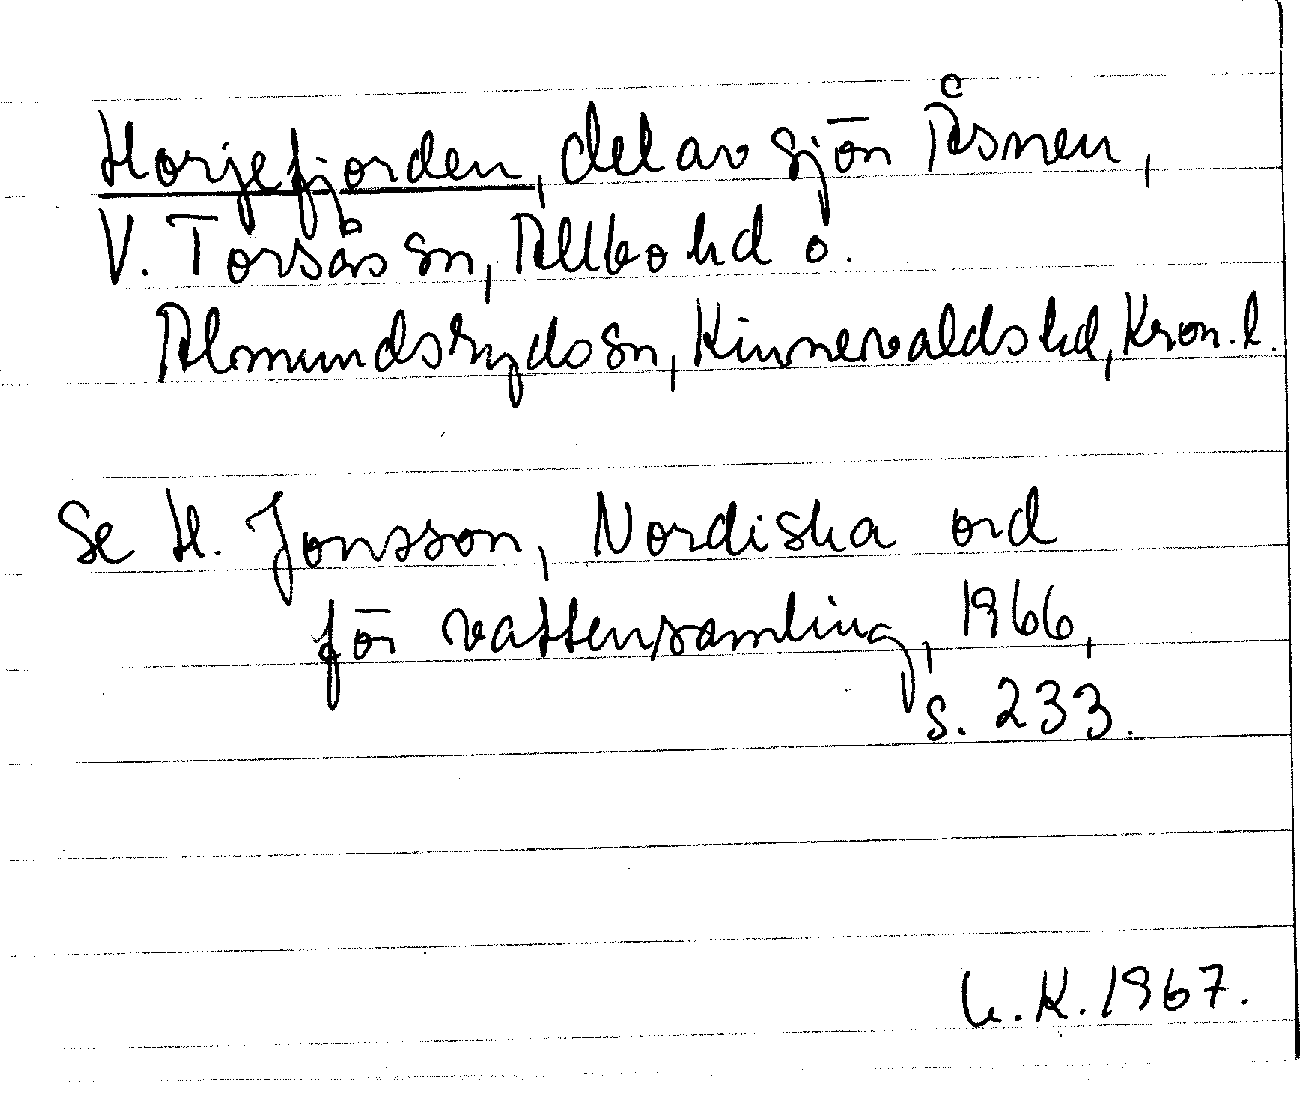 Horjefjorden, del av sjön Åsnen,
V. Torsås sn, Allbo hd o.
Almundsryds sn, Kinnevalds hd, Kron. l.
Se H. Jonsson, Nordiska ord
för vattensamling, 1966,
s. 233.
L.K. 1967.